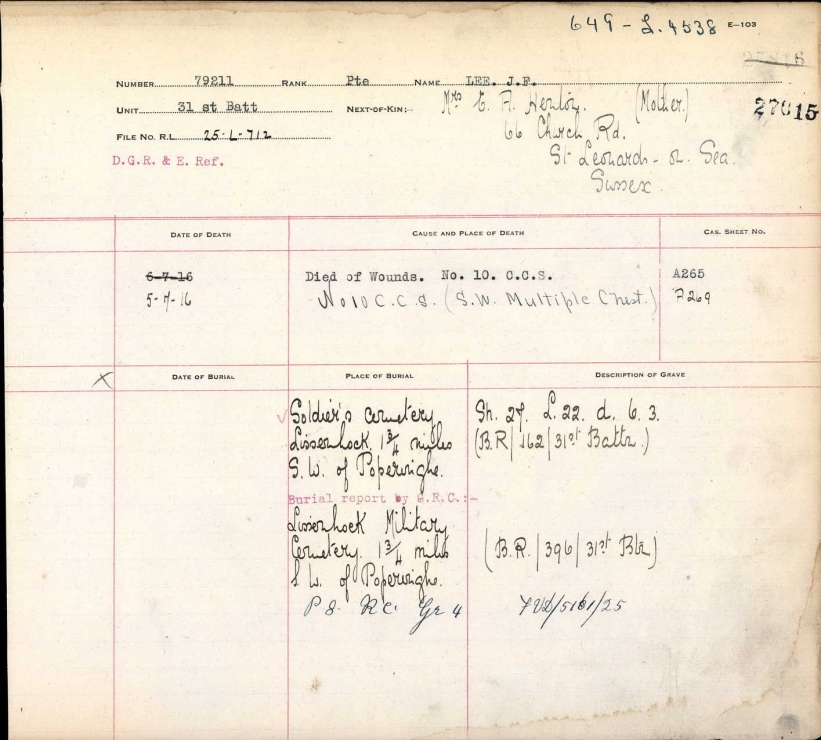 649 - L. 4538 E-103
NUMBER 79211 RANK Pte NAME LEE. J.F.
27615
UNIT 31 st Batt NEXT-OF-KIN:- Mrs E. A. (Mother.)
66 Church Rd.
FILE NO. R.L. 25-L-712
St Leonards - on - Sea.
D.G.R. & E. Ref.
Sussex.
DATE OF DEATH CAUSE AND PLACE OF DEATH CAS. SHEET NO.
6-7-16 Died of Wounds. No. 10. C.C.S. A265
5-7-16 No 10 C.C.S. (S.W. Multiple Chest.) A269
X DATE OF BURIAL PLACE OF BURIAL DESCRIPTION OF GRAVE
Soldier's Cemetery Sh. 27. L. 22. d. 6. 3.
Lissenhock. 1 3/4 miles (B.R/162/31st Battn.)
S.W. of Poperinghe.
Burial report by G.R.C.:-
Lissenhock Military
Cemetery. 1 3/4 miles (B.R./396/31st Btn)
S.W. of Poperinghe.
P 8. R C. Gr 4